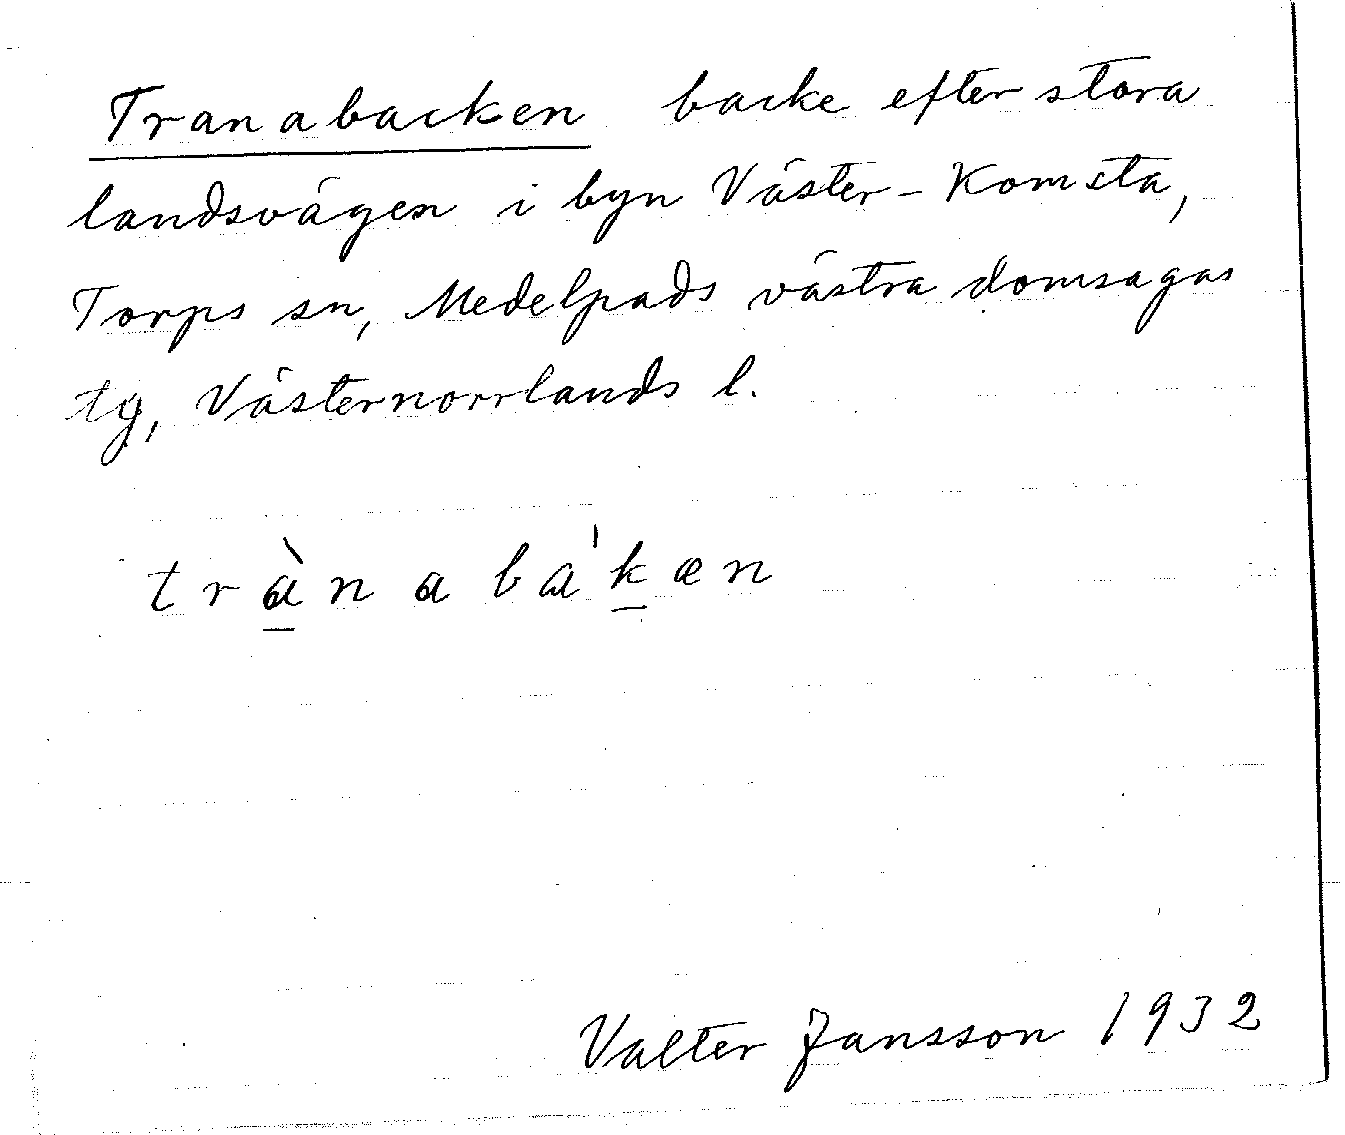 Tranabacken backe efter stora
landsvägen i byn Väster-Komsta,
Torps sn, Medelpads västra domsagas
tg, Västernorrlands l.
trànaba'kæn
Valter Jansson 1932